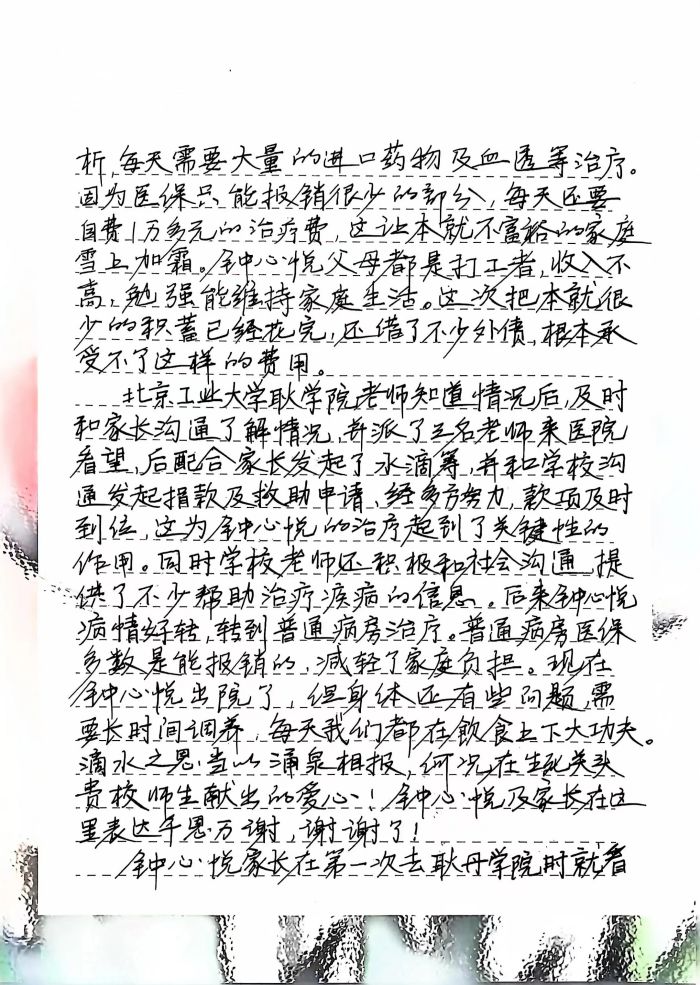 析,每天需要大量的进口药物及血透等治疗。
因为医保只能报销很少的部分,每天还要
自费1万多元的治疗费,这让本就不富裕的家庭
雪上加霜。钟心悦父母都是打工者,收入不
高,勉强能维持家庭生活。这次把本就很
少的积蓄已经花完,还借了不少外债,根本承
受不了这样的费用。
北京工业大学耿学院老师知道情况后,及时
和家长沟通了解情况,并派了三名老师来医院
看望,后配合家长发起了水滴筹,并和学校沟
通发起捐款及救助申请、经多方努力,款项及时
到位,这为钟心悦的治疗起到了关键性的
作用。同时学校老师还积极和社会沟通,提
供了不少帮助治疗疾病的信息。后来钟心悦
病情好转,转到普通病房治疗。普通病房医保
多数是能报销的,减轻了家庭负担。现在
钟心悦出院了,但身体还有些问题,需
要长时间调养,每天我们都在飲食上下大功夫。
滴水之恩当以涌泉相报,何况在生死关头
贵校师生献出的爱心!钟心悦及家长在这
里表达千恩万谢,谢谢了!
钟心悦家长在第一次去耿丹学院时就看